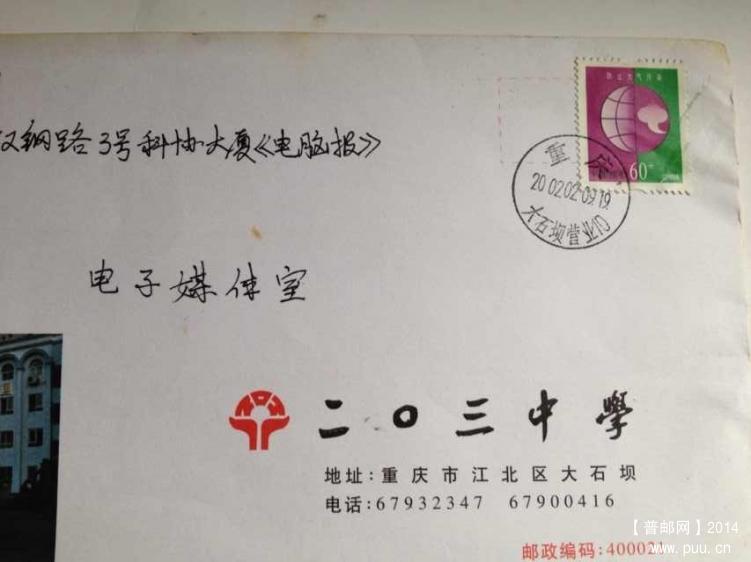 防止大气污染
60分
重庆
2002.02.09.19
大石坝营业(1)
汉钢路3号科协大厦《电脑报》
电子媒体室
二〇三中學
地址:重庆市江北区大石坝
电话:67932347 67900416
邮政编码:400021
【普邮网】2014
www.puu.cn